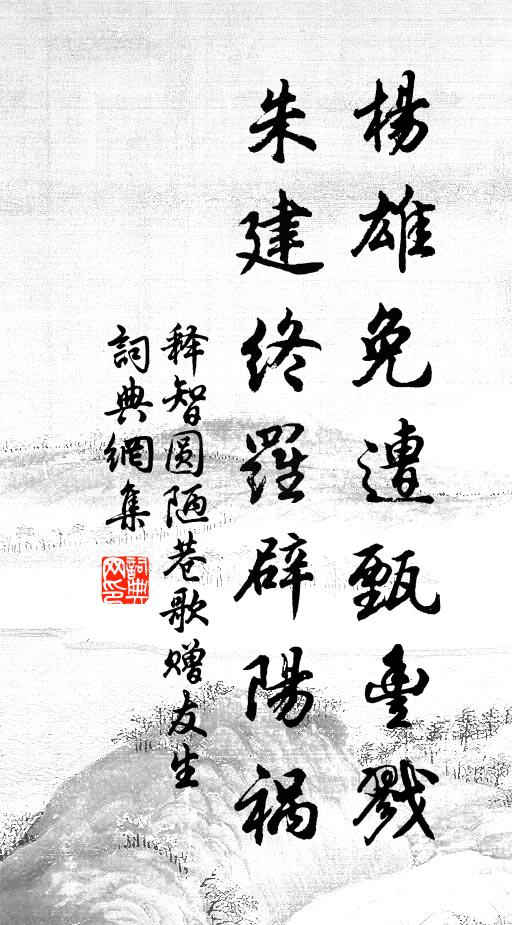 楊雄免遭甄豐戮
朱建終羅辟陽禍
释智圆陋巷歌赠友生
詞典網集
詞典網印